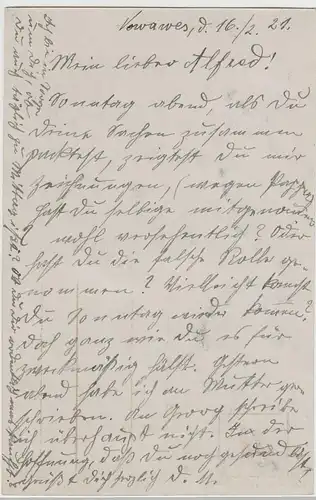 Nowawes, d. 16./2. 21.
Mein lieber Alfred!
Sonntag abend, als Du
Deine Sachen zusammen
packtest, zeigtest Du mir
Zeichnungen, (wegen
hast Du selbige mitgenommen
? wohl versehentlich? Oder
hast Du die falsche Rolle ge-
nommen? Vielleicht kommst
Du Sonntag wieder komm.?
Doch ganz wie Du es für
zweckmäßig hälst. Gestern
abend habe ich an Mutter ge-
schrieben. An Georg schreibe
ich überhaupt nicht. In der
Hoffnung daß Du noch gesund bist
grüßt Dich herzlich D. M.